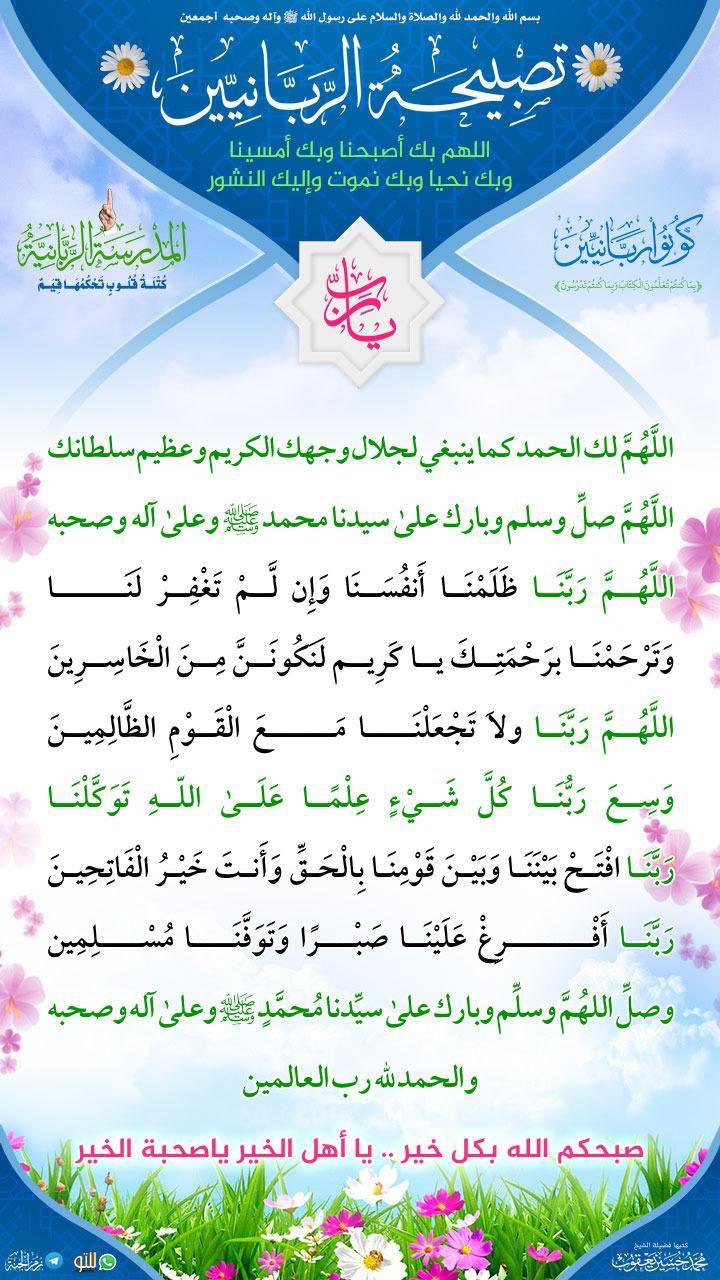 بسم الله والحمد لله والصلاة والسلام على رسول الله ﷺ وآله وصحبه أجمعين
تصبيحة الرَّبَّانيِّين
اللهم بك أصبحنا وبك أمسينا
وبك نحيا وبك نموت وإليك النشور
كُونُوا رَبَّانِيِّينَ
﴿بِمَا كُنتُمْ تُعَلِّمُونَ الْكِتَابَ وَبِمَا كُنتُمْ تَدْرُسُونَ﴾
المدرسة الربانية
كُتْلَةُ قُلُوبٍ تَحْكُمُهَا قِيَمٌ
يا رب
اللَّهُمَّ لك الحمد كما ينبغي لجلال وجهك الكريم وعظيم سلطانك
اللَّهُمَّ صلِّ وسلم وبارك علىٰ سيدنا محمد ﷺ وعلىٰ آله وصحبه
اللَّهُمَّ رَبَّنَا ظَلَمْنَا أَنفُسَنَا وَإِن لَّمْ تَغْفِرْ لَنَا
وَتَرْحَمْنَا برَحْمَتِكَ يا كَرِيم لَنَكُونَنَّ مِنَ الْخَاسِرِينَ
اللَّهُمَّ رَبَّنَا ولاَ تَجْعَلْنَا مَعَ الْقَوْمِ الظَّالِمِينَ
وَسِعَ رَبُّنَا كُلَّ شَيْءٍ عِلْمًا عَلَىٰ اللّهِ تَوَكَّلْنَا
رَبَّنَا افْتَحْ بَيْنَنَا وَبَيْنَ قَوْمِنَا بِالْحَقِّ وَأَنتَ خَيْرُ الْفَاتِحِينَ
رَبَّنَا أَفْرِغْ عَلَيْنَا صَبْرًا وَتَوَفَّنَا مُسْلِمِين
وصلِّ اللهُمَّ وسلِّم وبارك علىٰ سيِّدنا مُحمَّدٍ ﷺ وعلىٰ آله وصحبه
والحمد لله رب العالمين
صبحكم الله بكل خير .. يا أهل الخير ياصحبة الخير
كتبها فضيلة الشيخ
محمد حسين يعقوب
للتو
زمر الجنة